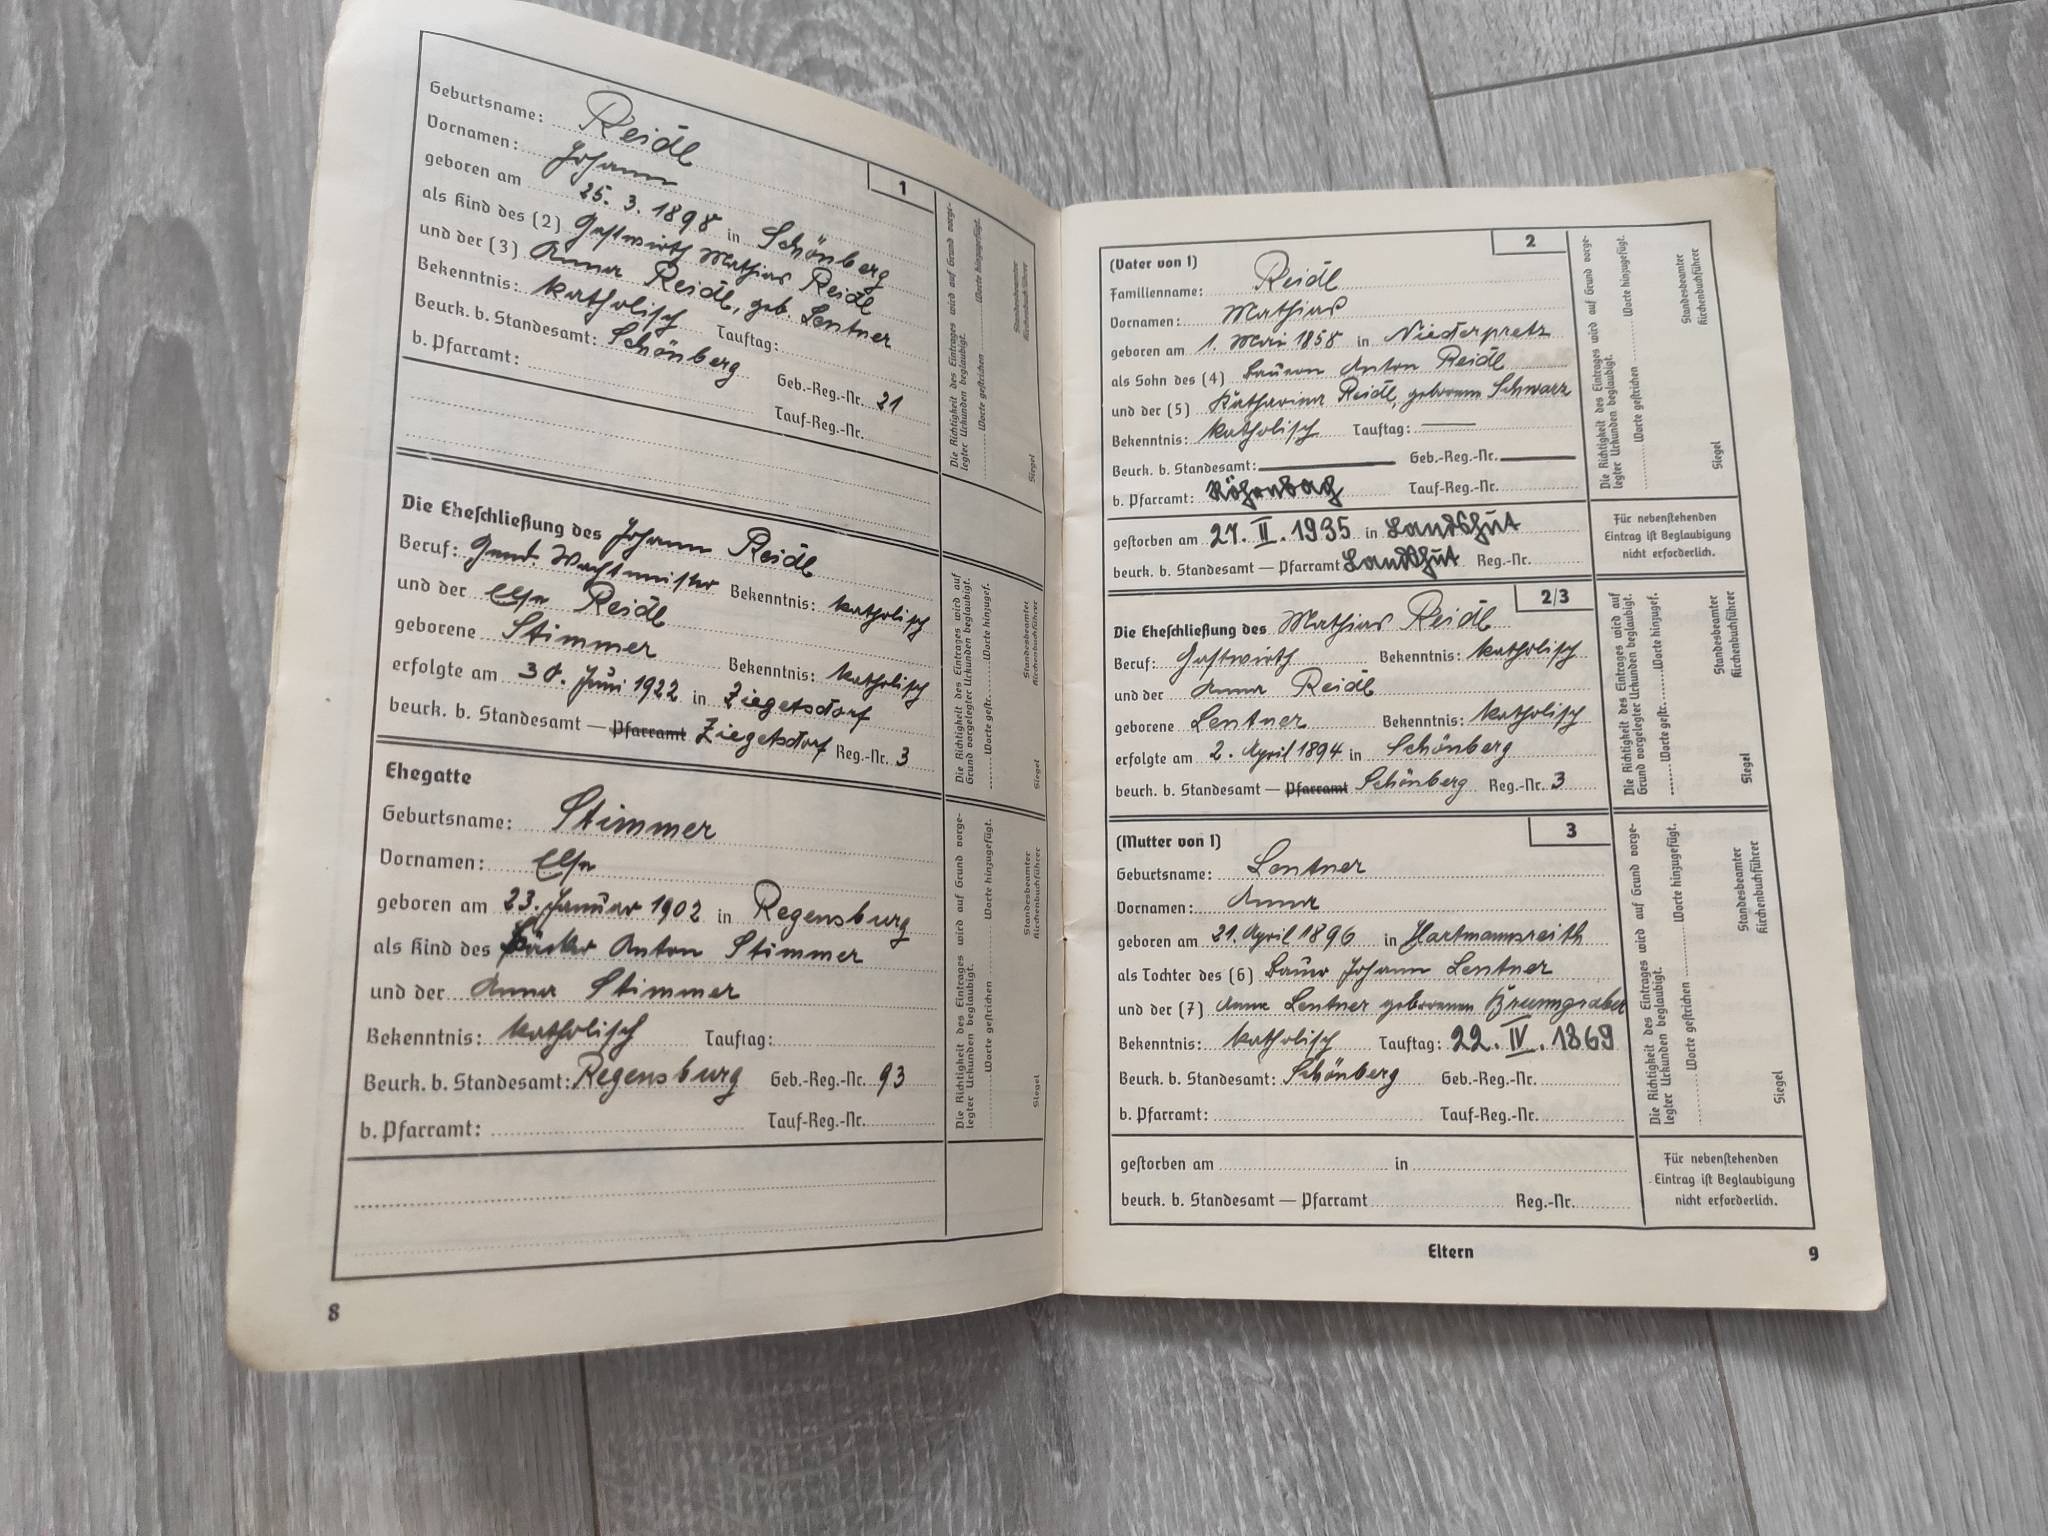 1
Geburtsname: Reidl
Vornamen: Johann
geboren am 25. 3. 1898 in Schönberg
als Kind des (2) Gastwirth Mathias Reidl
und der (3) Anna Reidl, geb. Lentner
Bekenntnis: katholisch Tauftag:
Beurk. b. Standesamt: Schönberg Geb.-Reg.-Nr. 21
b. Pfarramt: Tauf-Reg.-Nr.
Die Richtigkeit des Eintrages wird auf Grund vorge-
legter Urkunden beglaubigt.
Worte gestrichen Worte hinzugefügt.
Siegel Standesbeamter
Kirchenbuchführer
Die Eheschließung des Johann Reidl
Beruf: Gend. Wachtmeister Bekenntnis: katholisch
und der Elsa Reidl
geborene Stimmer Bekenntnis: katholisch
erfolgte am 30. Juni 1922 in Ziegetsdorf
beurk. b. Standesamt — Pfarramt Ziegetsdorf Reg.-Nr. 3
Die Richtigkeit des Eintrages wird auf
Grund vorgelegter Urkunden beglaubigt.
Worte gestr. Worte hinzugef.
Siegel Standesbeamter
Kirchenbuchführer
Ehegatte
Geburtsname: Stimmer
Vornamen: Elsa
geboren am 23. Januar 1902 in Regensburg
als Kind des Bäcker Anton Stimmer
und der Anna Stimmer
Bekenntnis: katholisch Tauftag:
Beurk. b. Standesamt: Regensburg Geb.-Reg.-Nr. 93
b. Pfarramt: Tauf-Reg.-Nr.
Die Richtigkeit des Eintrages wird auf Grund vorge-
legter Urkunden beglaubigt.
Worte gestrichen Worte hinzugefügt.
Siegel Standesbeamter
Kirchenbuchführer
8
2
(Vater von 1)
Familienname: Reidl
Vornamen: Mathias
geboren am 1. Mai 1858 in Niederpretz
als Sohn des (4) Bauern Anton Reidl
und der (5) Katharina Reidl, geborene Schwarz
Bekenntnis: katholisch Tauftag: —
Beurk. b. Standesamt: — Geb.-Reg.-Nr. —
b. Pfarramt: Röhrnbach Tauf-Reg.-Nr.
Die Richtigkeit des Eintrages wird auf Grund vorge-
legter Urkunden beglaubigt.
Worte gestrichen Worte hinzugefügt.
Siegel Standesbeamter
Kirchenbuchführer
gestorben am 27. II. 1935 in Landshut
beurk. b. Standesamt — Pfarramt Landshut Reg.-Nr.
Für nebenstehenden
Eintrag ist Beglaubigung
nicht erforderlich.
2/3
Die Eheschließung des Mathias Reidl
Beruf: Gastwirth Bekenntnis: katholisch
und der Anna Reidl
geborene Lentner Bekenntnis: katholisch
erfolgte am 2. April 1894 in Schönberg
beurk. b. Standesamt — Pfarramt Schönberg Reg.-Nr. 3
Die Richtigkeit des Eintrages wird auf
Grund vorgelegter Urkunden beglaubigt.
Worte gestr. Worte hinzugef.
Siegel Standesbeamter
Kirchenbuchführer
3
(Mutter von 1)
Geburtsname: Lentner
Vornamen: Anna
geboren am 21. April 1896 in Hartmannsreith
als Tochter des (6) Bauer Johann Lentner
und der (7) Anna Lentner geborenen Brunngraber
Bekenntnis: katholisch Tauftag: 22. IV. 1869
Beurk. b. Standesamt: Schönberg Geb.-Reg.-Nr.
b. Pfarramt: Tauf-Reg.-Nr.
Die Richtigkeit des Eintrages wird auf Grund vorge-
legter Urkunden beglaubigt.
Worte gestrichen Worte hinzugefügt.
Siegel Standesbeamter
Kirchenbuchführer
gestorben am in
beurk. b. Standesamt — Pfarramt Reg.-Nr.
Für nebenstehenden
Eintrag ist Beglaubigung
nicht erforderlich.
Eltern
9